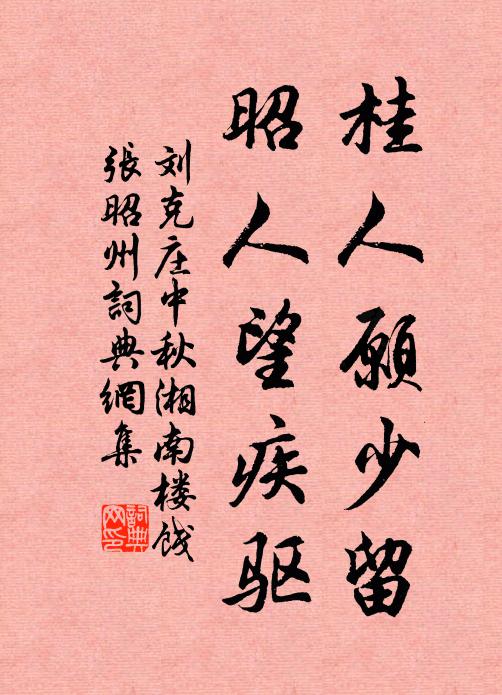 桂人愿少留
昭人望疾驱
刘克庄中秋湘南楼饯
張昭州詞典網集
詞典网印